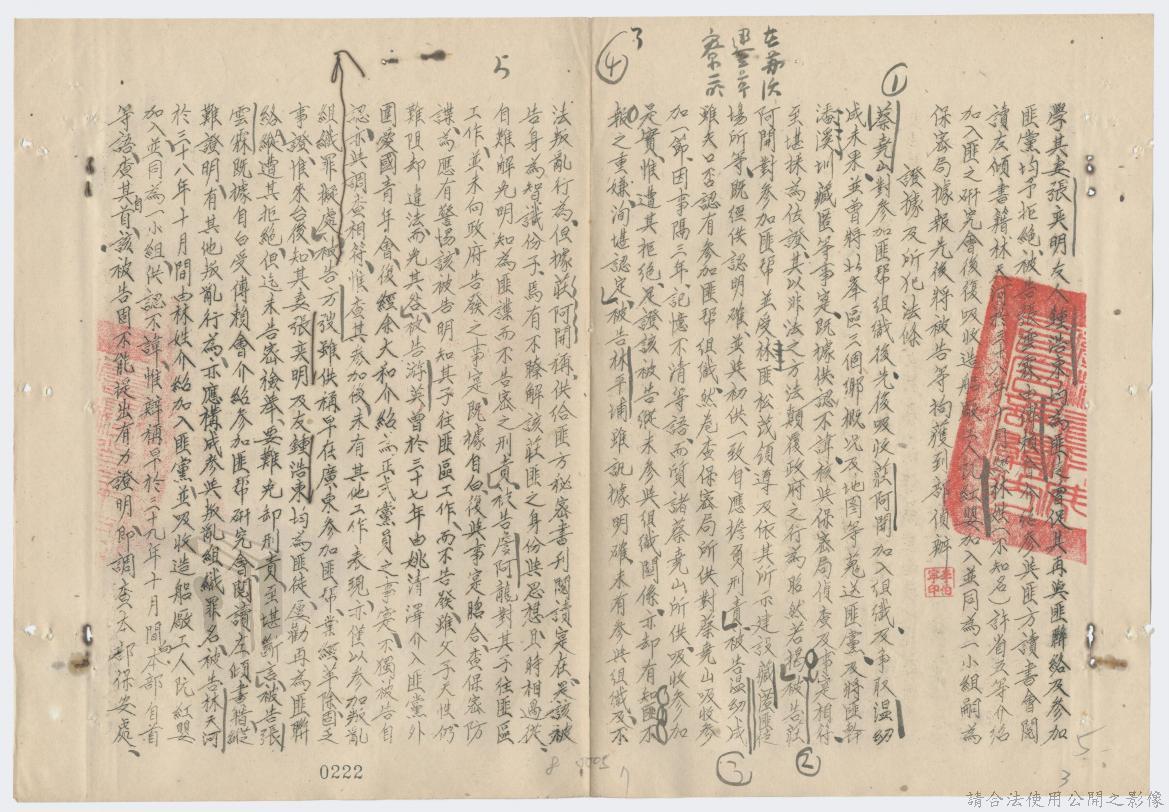 學其妻張奕明友人鍾浩東均為匪徒曾促其再與匪聯絡及參加
匪黨均予拒絕被告張雲霖由傅賴會介紹參與匪方讀書會閱
讀左傾書籍林天河於三十八年十月間受林然(不知名)許省五等介紹
加入匪之研究會後復吸收造船廠工人阮紅嬰加入並同為一小組嗣為
保密局據報先後將被告等拘獲到部偵辦
證據及所犯法條
蔡堯山對參加匪幫組織後先後吸收莊阿開加入組織及爭取溫幼
成未果並曾將北峯區三個鄉概況及地圖等菟送匪黨及將匪幹
潘溪圳藏匿等事實既據供認不諱核與保密局偵查及事實相符
至堪採為佐證其以非法之方法顛覆政府之行為昭然若揭被告莊
阿開對參加匪幫並受林匪松茂領導及依其所示建設藏匿匪
場所等既經供認明確並與初供一致自應擔負刑責被告溫幼成
雖矢口否認有參加匪幫組織然卷查保密局所供對蔡堯山吸收參
加一節因事隔三年記憶不清等語而質諸蔡堯山所供吸收參加
是實惟遭其拒絕足證該被告縱未參與組織關係亦却有知匪不
報之重嫌洵堪認定被告林平浦雖訊據明確未有參與組織及不
法叛亂行為但據莊阿開稱供給匪方秘密書刊閱讀實在是該被
告身為智識份子焉有不瞭解該莊匪之身份與思想且時相過從
自難解免明知為匪諜而不告密之刑責被告廖阿龍對其子往匪區
工作並未向政府告發之事實既據自白復與事實昭合查保密防
諜為應有警惕該被告明知其子往匪區工作而不告發雖父子天性何
難阻却違法而免其咎被告游英曾於三十七年由姚清澤介入匪黨外
圍愛國青年會後經余大和介紹為正式黨員之事實不獨被告自
認亦與調查相符惟查其參加後未有其他工作表現亦僅以參加叛亂
組織罪擬處被告方弢雖供稱早在廣東參加匪幫業經革除固乏
事證惟來台後知其妻張奕明及友鍾浩東均為匪徒屢勸再為匪聯
絡縱遭其拒絕但迄未告密檢舉要難免卸刑責至堪斷言被告張
雲霖既據自白受傅賴會介紹參加匪幫研究會閱讀左傾書籍縱
難證明有其他叛亂行為亦應構成參與叛亂組織罪名被告林天河
於三十八年十月間由林姓介紹加入匪黨並吸收造船廠工人阮紅嬰
加入並同為一小組供認不諱惟辯稱早於三十九年十月間向本部自首
等語查其自首該被告固不能提出有力證明即調查本部保安處
①
在莽次
②
③
④
3
5
5
3
7
8
0222
請合法使用公開之影像